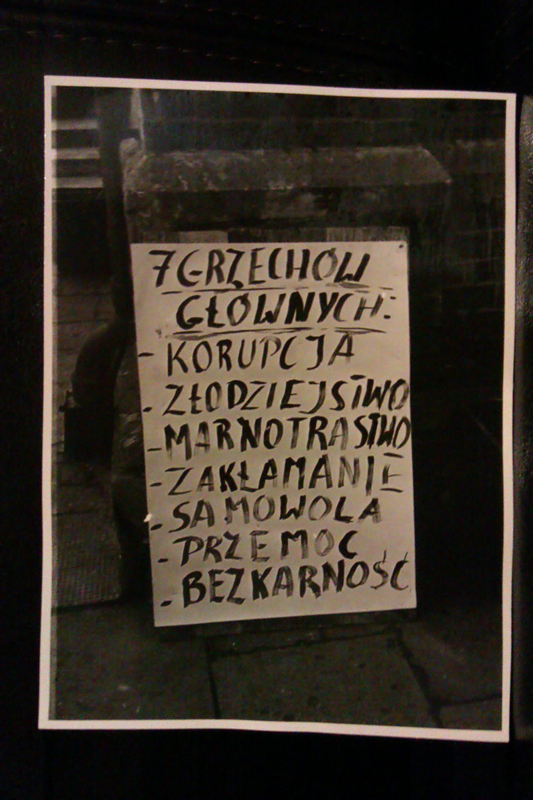 7 GRZECHÓW
GŁÓWNYCH:
- KORUPCJA
- ZŁODZIEJSTWO
- MARNOTRASTWO
- ZAKŁAMANIE
- SAMOWOLA
- PRZEMOC
- BEZKARNOŚĆ